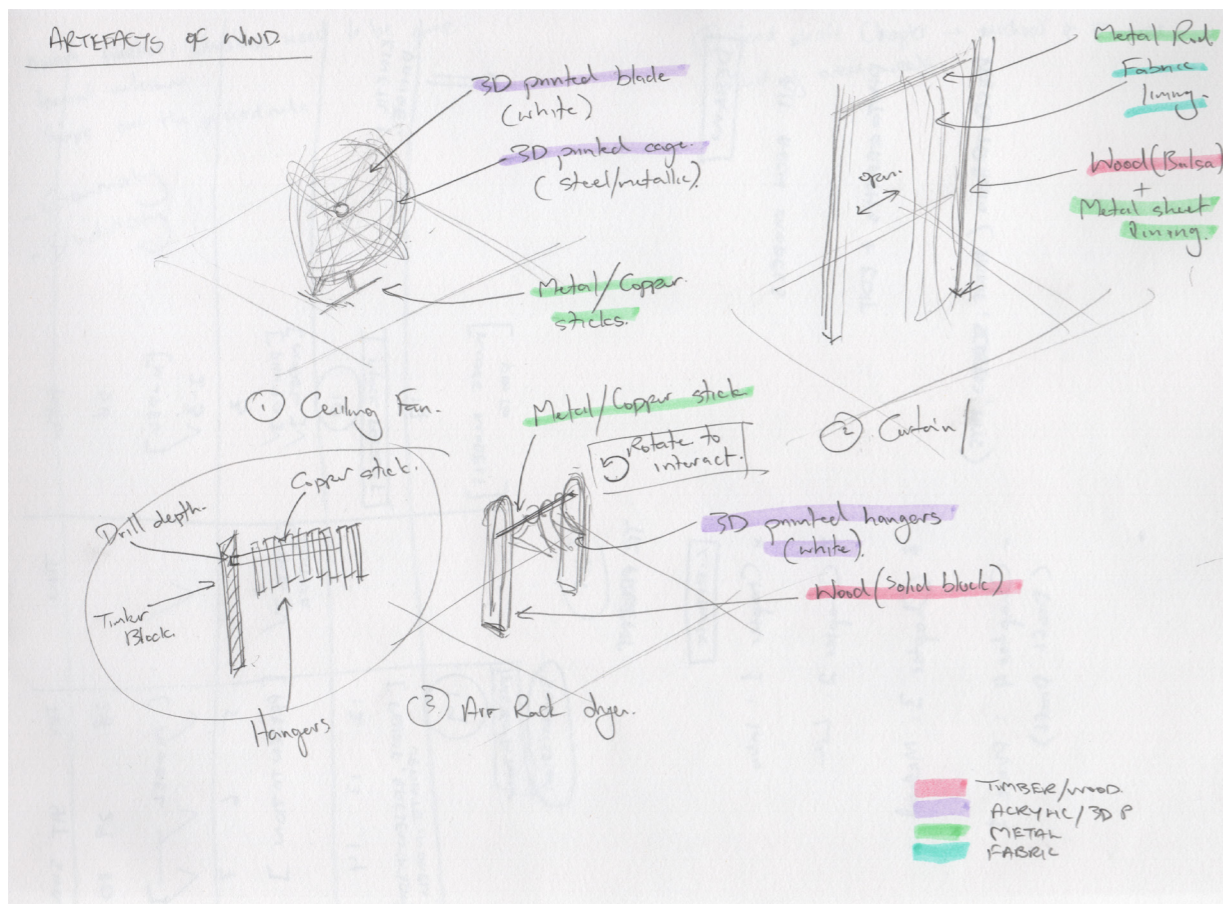 ARTEFACTS OF WIND
3D printed blade
(white)
3D printed cage.
(steel/metallic).
Metal/Copper
sticks.
① Ceiling Fan.
Metal Rod
Fabric
lining.
Wood (Balsa)
+
Metal sheet
lining.
open.
② Curtain
Metal/Copper stick
Rotate to
interact.
3D printed hangers
(white).
Wood (solid block)
③ Air Rack dryer.
Copper stick.
Drill depth.
Timber
Block.
Hangers
TIMBER/WOOD
ACRYLIC/3D P
METAL
FABRIC